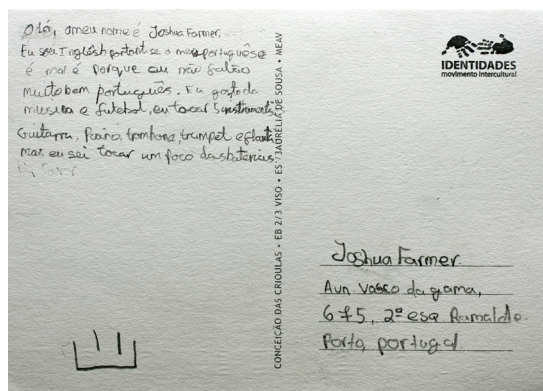 Oló, o meu nome é Joshua Farmer.
Eu sei Inglésh portant se o meu português
é mal é porque eu não falão
muito bem português. Eu gosto da
musica e futebol, eu tocar 5 instruments
Guitarra, Paino, trombone, trumpet e flauta
mas eu sei tocar um poco das baterias
CONCEIÇÃO DAS CRIOULAS • EB 2/3 VISO • ES/3 AURÉLIA DE SOUSA • MEAV
IDENTIDADES
movimento intercultural
Joshua Farmer
Aun. Vasco da gama,
675, 2º esq Ramalde.
Porto, portugal